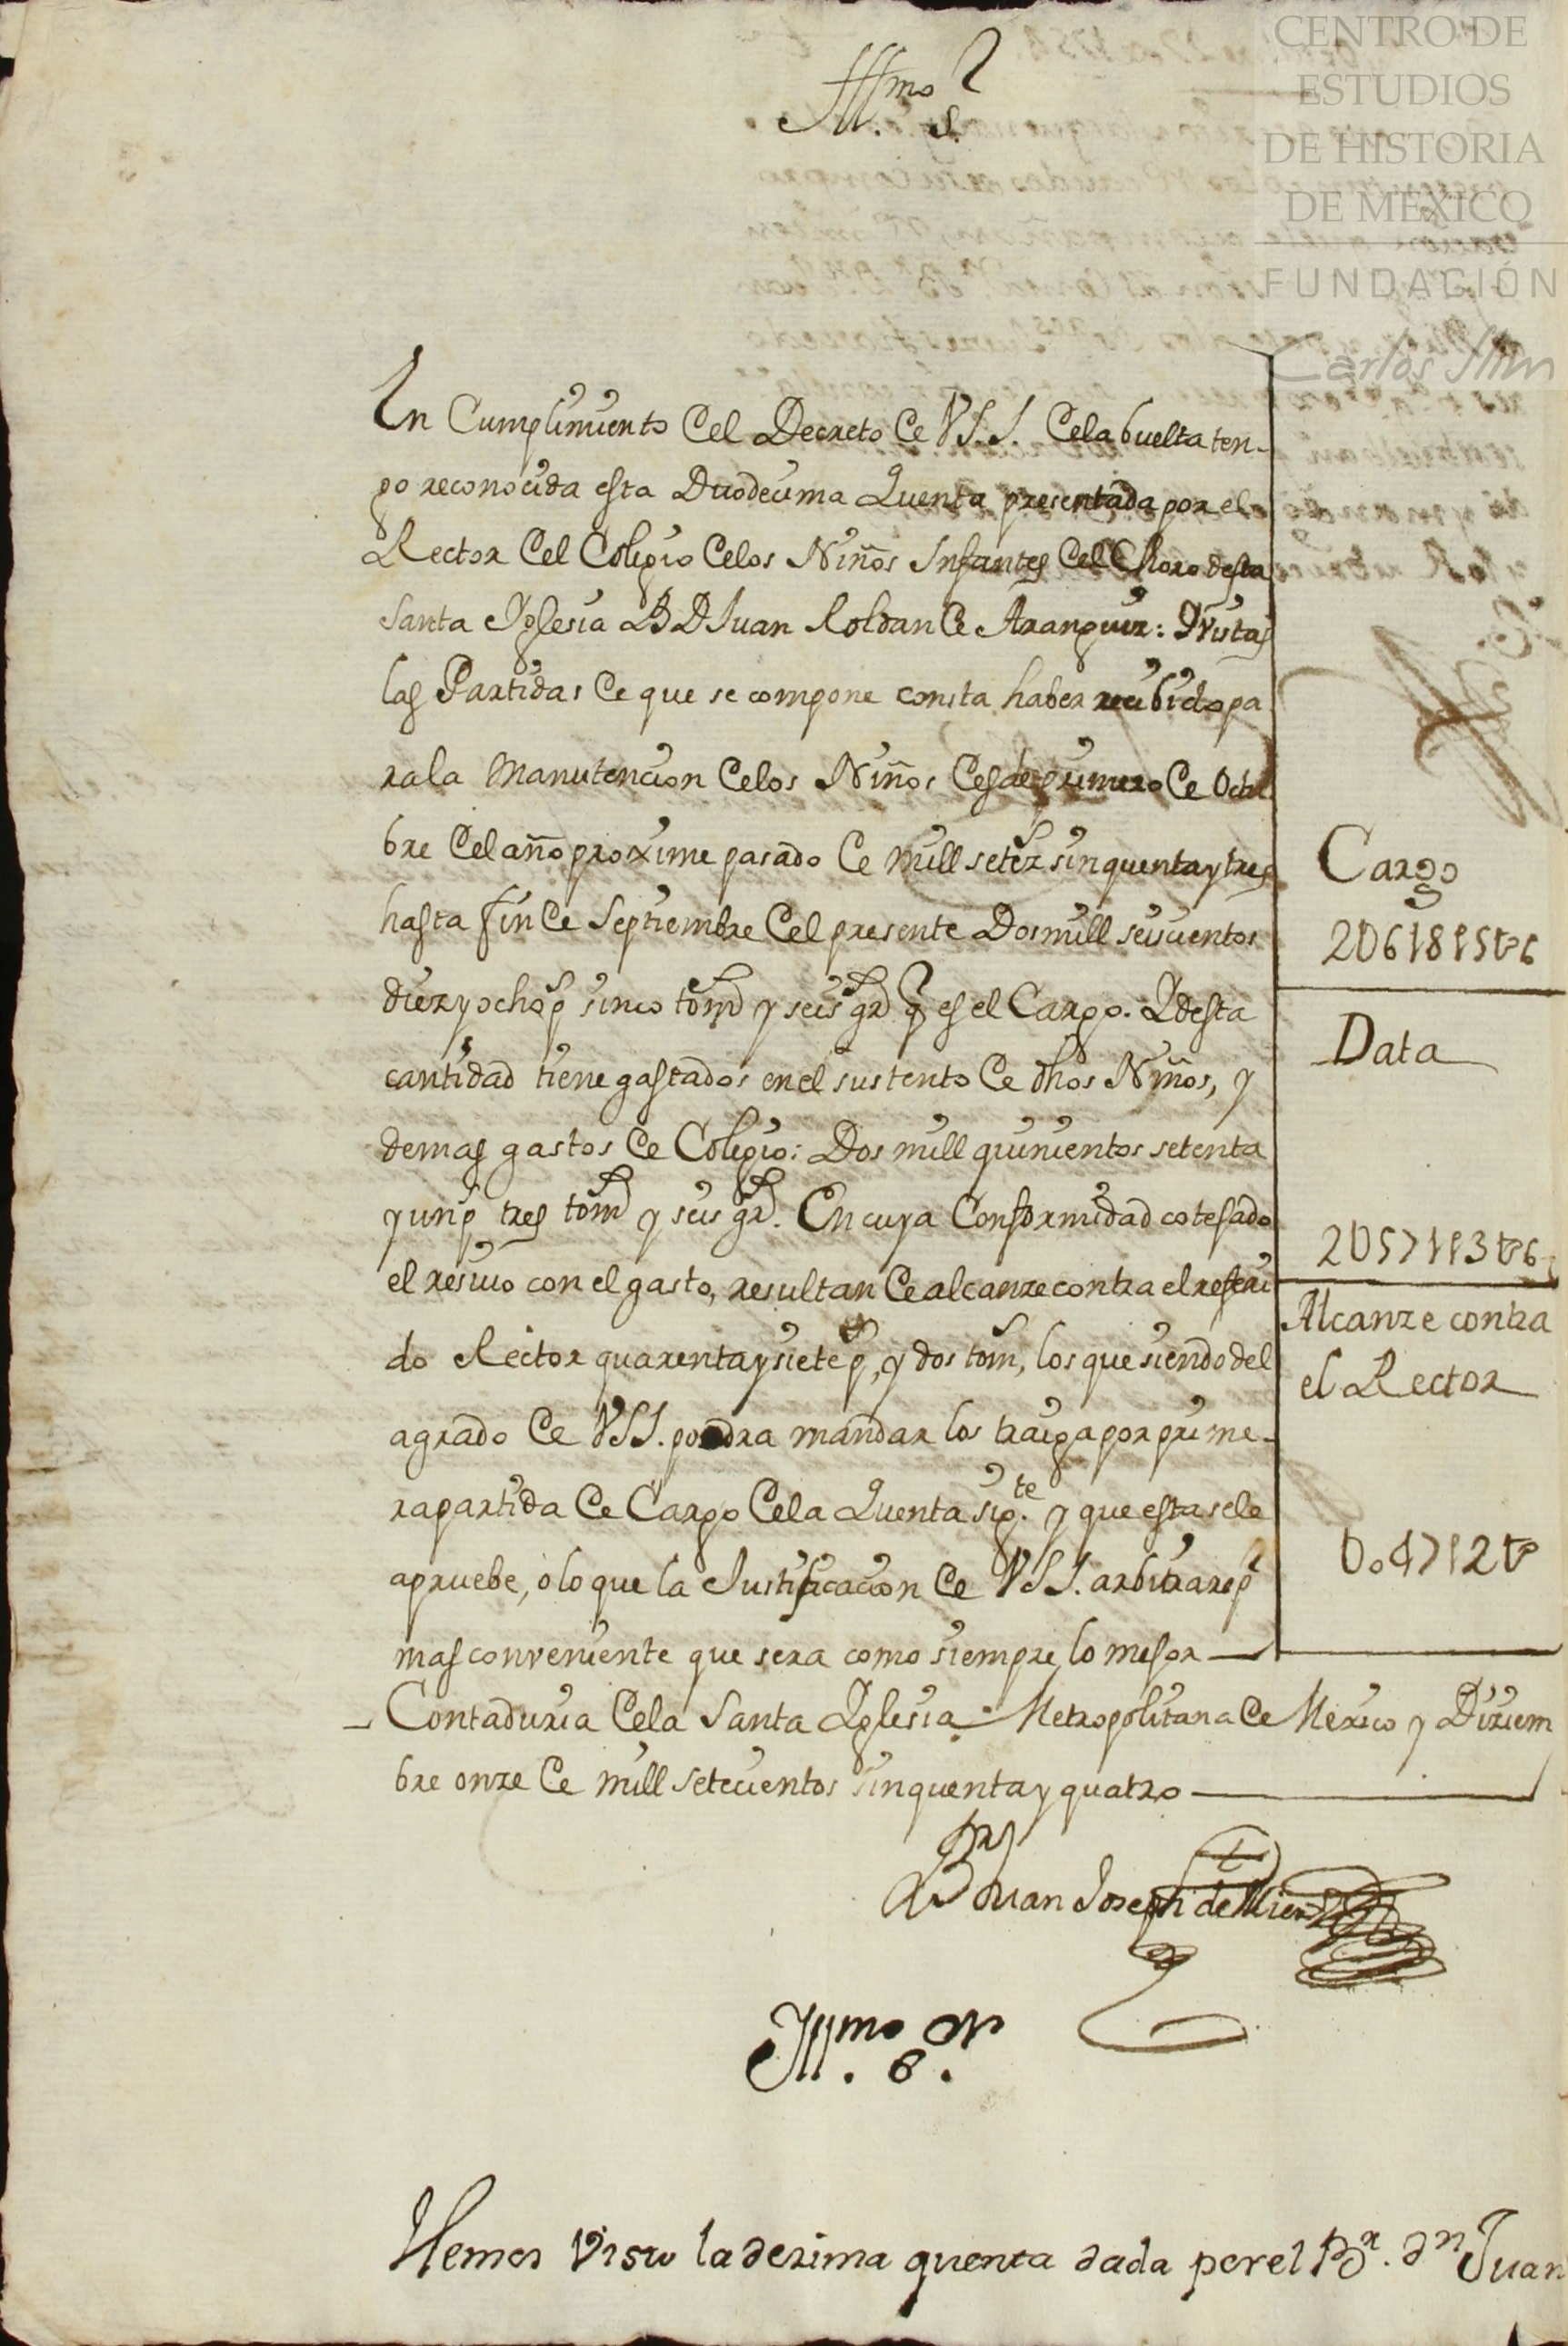 CENTRO DE
ESTUDIOS
DE HISTORIA
DE MÉXICO
FUNDACIÓN
Carlos Slim
Illmo S.r
En Cumplimiento del Decreto de VSS. dela buelta ten-
go reconocida esta Duodecima Quenta presentada por el
Rector del Colegio delos Niños Infantes del Choro desta
Santa Yglesia B D Juan Roldan de Aranguiz: Y vistas
las Partidas de que se compone consta haber recibido pa
rala Manutencion delos Niños desde primero de Octu
bre del año proxime pasado de mill setez sinquenta y tres
hasta fin de Septiembre del presente Dos mill seiscientos
diez y ocho ps sinco toms y seis gs q es el Cargo. Y desta
cantidad tiene gastados en el sustento de dhos Niños, y
demas gastos de Colegio: Dos mill quinientos setenta
y un ps tres toms y seis gs. En cuya Conformidad cotejado
el resivo con el gasto, resultan de alcanze contra el referi
do Rector quarenta y siete ps, y dos toms, los que siendo del
agrado de VSS. podra mandar los traiga por prime-
ra partida de Cargo dela Quenta sig.te y que esta sele
apruebe, o lo que la Justificacion de VSS. arbitrare pr
mas conveniente que sera como siempre lo mejor
Contaduria dela Santa Yglesia Metropolitana de Mexico y Diziem
bre onze de mill setecientos sinquenta y quatro
Cargo
2U618p5t6
Data
2U571p3t6
Alcanze contra
el Rector
U047p2t
Br Juan Joseph de Mier
Illmo Sr.
Hemos Visto la dezima quenta dada por el Br. dn Juan